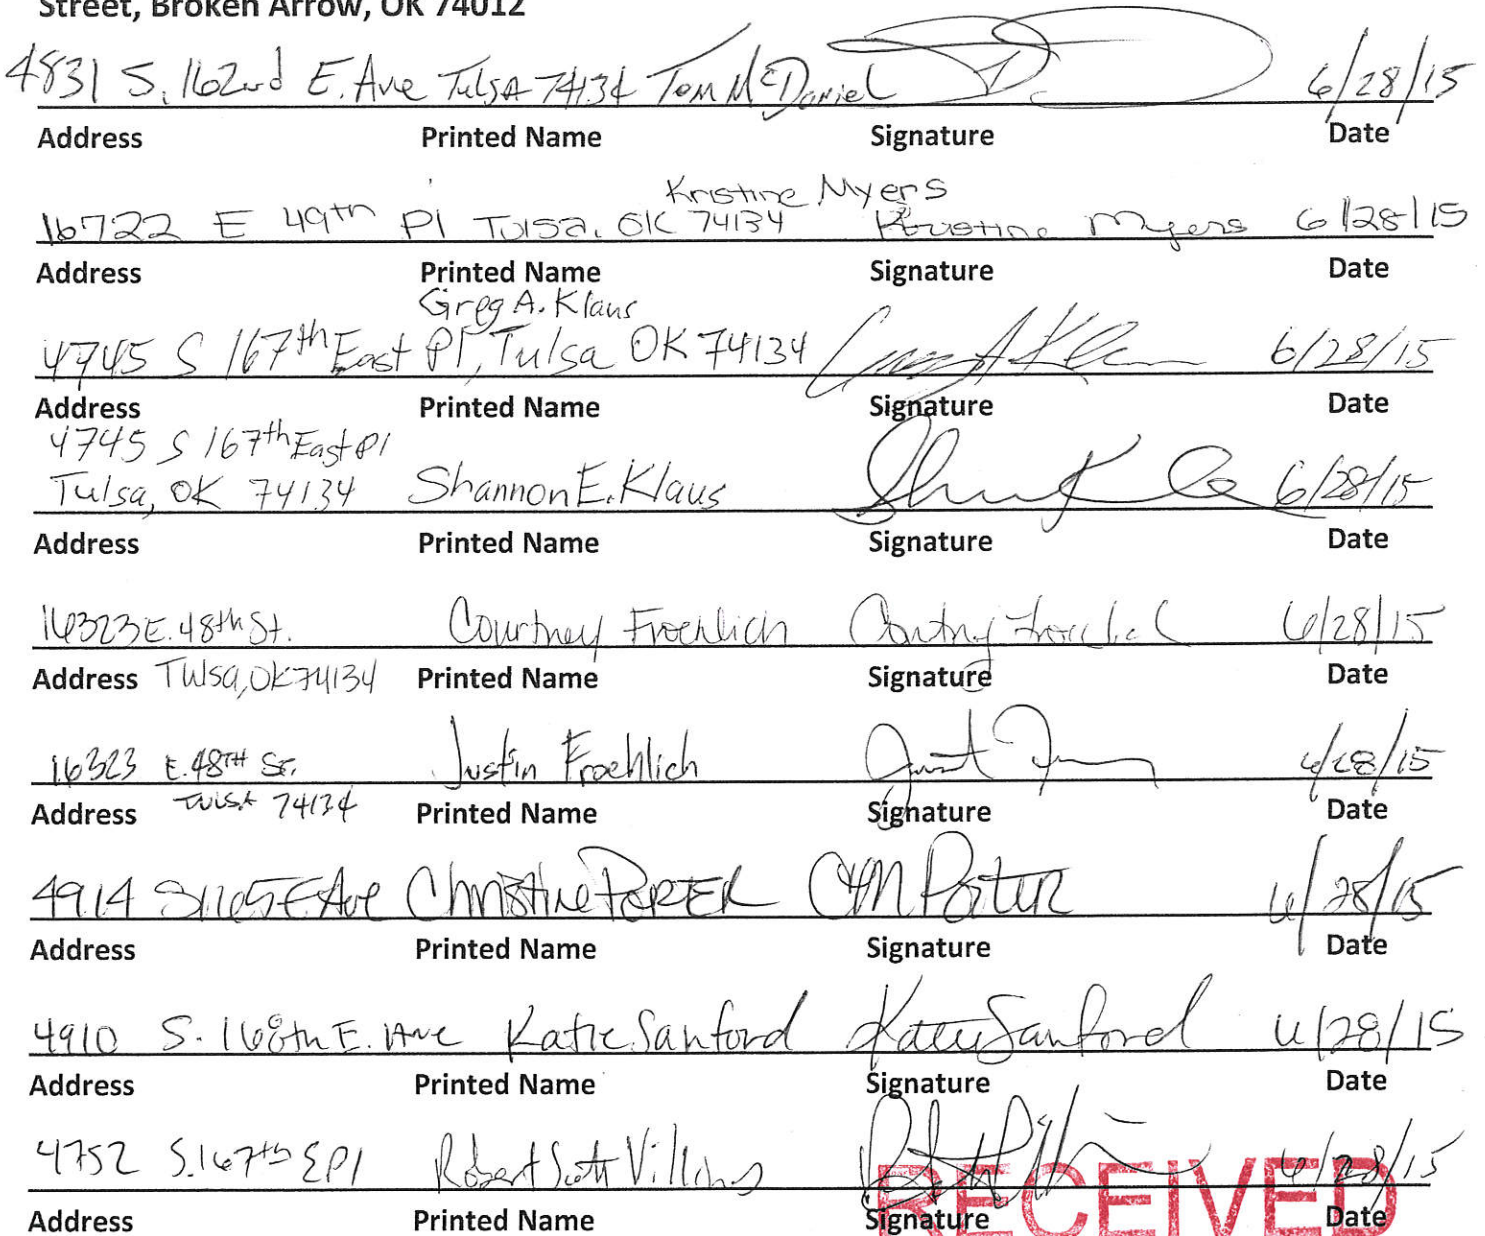 Street, Broken Arrow, OK 74012
4831 S. 162nd E. Ave Tulsa 74134 Tom McDaniel 6/28/15
Address Printed Name Signature Date
Kristine Myers
16722 E 49th Pl Tulsa, OK 74134 Kristine Myers 6/28/15
Address Printed Name Signature Date
Greg A. Klaus
4745 S 167th East Pl, Tulsa OK 74134 6/28/15
Address Printed Name Signature Date
4745 S 167th East Pl
Tulsa, OK 74134 Shannon E. Klaus 6/28/15
Address Printed Name Signature Date
16323 E. 48th St. Courtney Froehlich Courtney Froehlich 6/28/15
Address Tulsa, OK 74134 Printed Name Signature Date
16323 E. 48TH ST. Justin Froehlich 6/28/15
Address TULSA 74134 Printed Name Signature Date
4914 S 165 E Ave Christine PORTER CM Porter 6/28/15
Address Printed Name Signature Date
4910 S. 168th E. Ave Katie Sanford Katie Sanford 6/28/15
Address Printed Name Signature Date
4752 S. 167th E Pl Robert Scott Villines 6/28/15
RECEIVED
Address Printed Name Signature Date